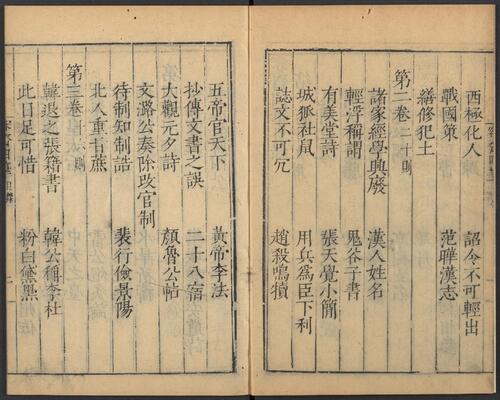 西極化人 詔令不可輕出
戰國策 范曄漢志
繕修犯土
第二卷二十則
諸家經學興廢 漢人姓名
輕浮稱謂 鬼谷子書
有美堂詩 張天覺小簡
城狐社鼠 用兵爲臣下利
誌文不可冗 趙殺鳴犢
五帝官天下 黃帝李法
抄傳文書之誤 二十八宿
大觀元夕詩 顏魯公帖
文潞公奏除改官制
待制知制誥 裴行儉景陽
北人重甘蔗
第三卷
韓退之張籍書 韓公稱李杜
此日足可惜 粉白黛黑